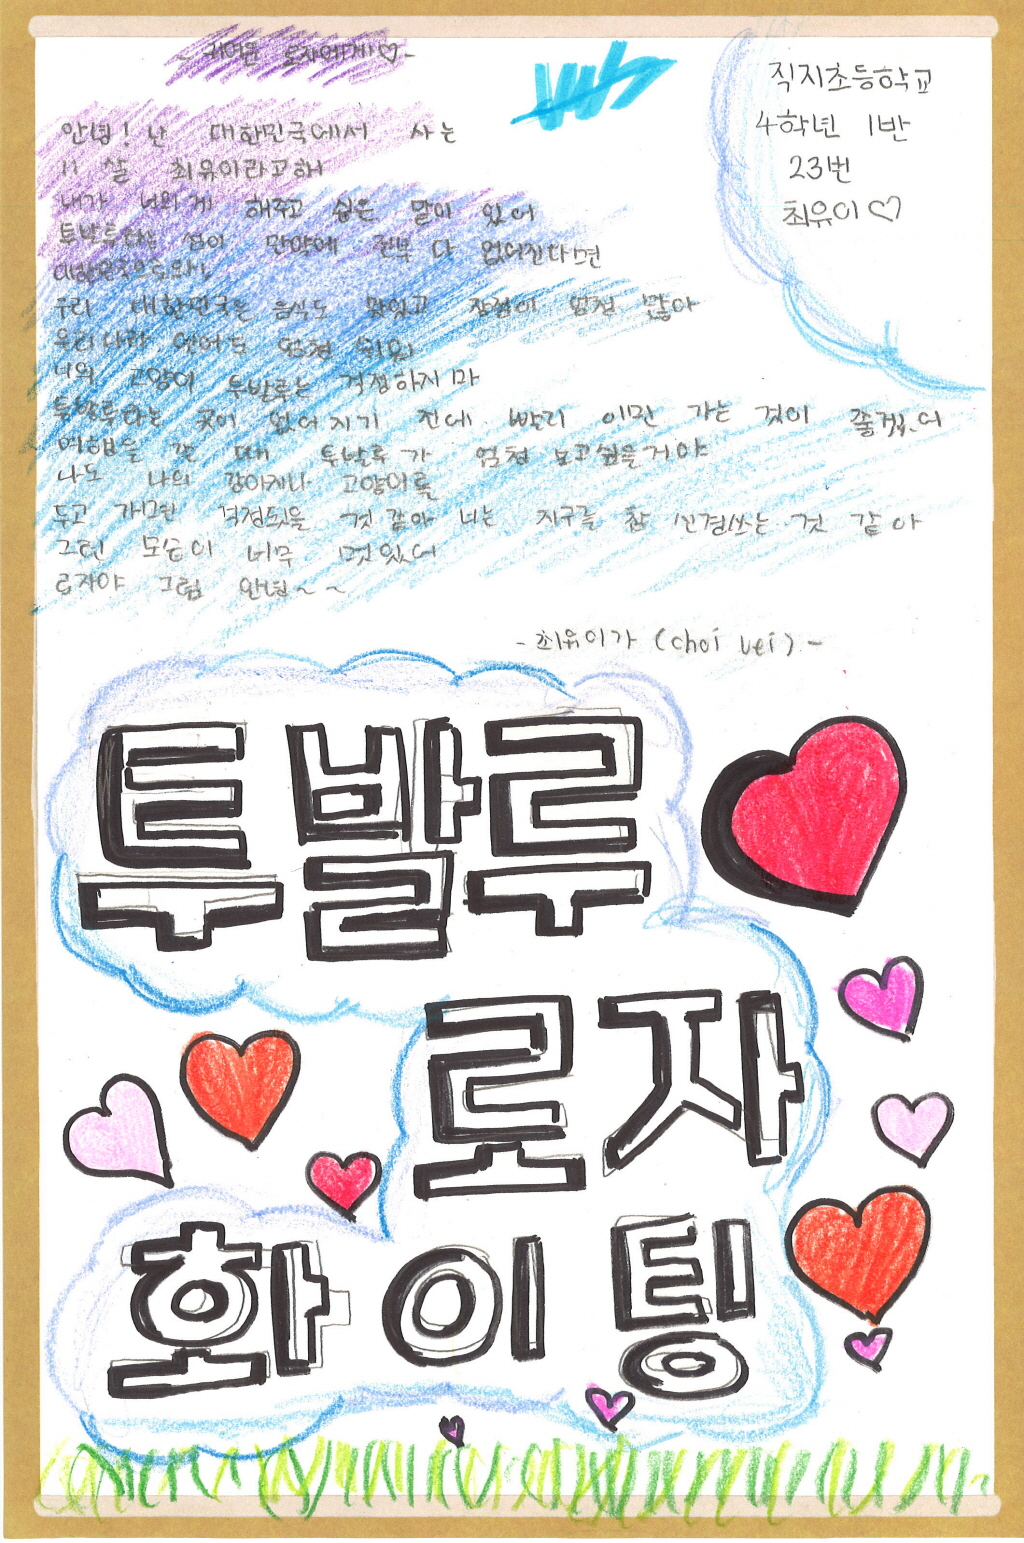 ~ 귀여운 로자에게♡~
직지초등학교
4학년 1반
23번
최유이♡
안녕! 난 대한민국에서 사는
11살 최유이라고해
내가 너의게 해주고 싶은 말이 있어
투발루라는 섬이 만약에 전부 다 없어진다면
대한민국으로 와!
우리 대한민국은 음식도 맛있고 장점이 엄청 많아
우리나라 언어도 엄청 쉬워
너의 고양이 투발루는 걱정하지마
투발루라는 곳이 없어지기 전에 빨리 이민 가는 것이 좋겠어
여행을 갈 때 투발루가 엄청 보고싶을거야
나도 나의 강아지나 고양이를
두고 가면 걱정됬을 것 같아 너는 지구를 참 신경쓰는 것 같아
그런 모습이 너무 멋있어
로자야 그럼 안녕~~
-최유이가 (choi uei)-
투발루
로자
화이팅